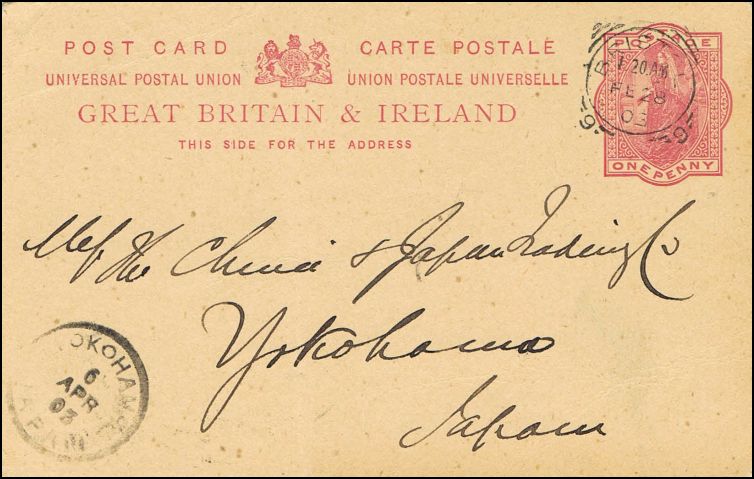 POST CARD CARTE POSTALE
UNIVERSAL POSTAL UNION UNION POSTALE UNIVERSELLE
GREAT BRITAIN & IRELAND
THIS SIDE FOR THE ADDRESS
POSTAGE
ONE PENNY
BRISTOL
20 AM
FE 28
03
The China & Japan Trading Co
Yokohama
Japan
YOKOHAMA
6
APR
03
JAPAN